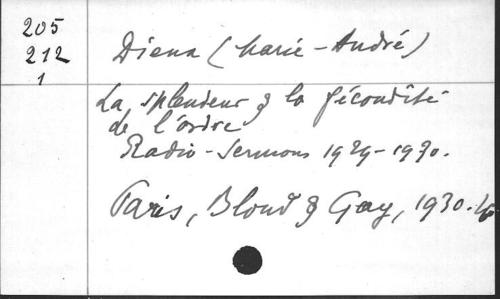 205
212
1
Diena (Marie-André)
La splendeur & la fécondité
de l'ordre
Radio-Sermons 1929-1930.
Paris, Bloud & Gay, 1930.